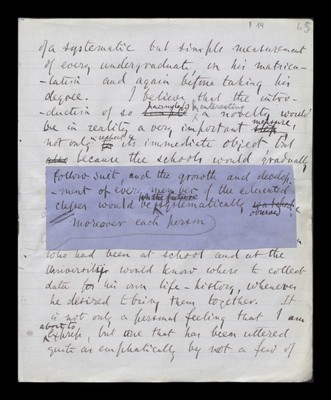 1 14
45
of a systematic but simple measurement
of every undergraduate, on his matricu-
-lation and again before taking his
degree. I believe that the intro-
-duction of so & interesting a novelty would
be in reality a very important step measure,
not only in respect to its immediate object but
also because the schools would gradually
follow suit, and the growth and develop-
-ment of every member of the educated
classes would in the future be systematically observed
moreover each person
who had been at school and at the
University would know where to collect
data for his own life-history, whenever
he desired to bring them together. It
is not only a personal feeling that I am
about to express, but one that has been uttered
quite as emphatically by not a few of